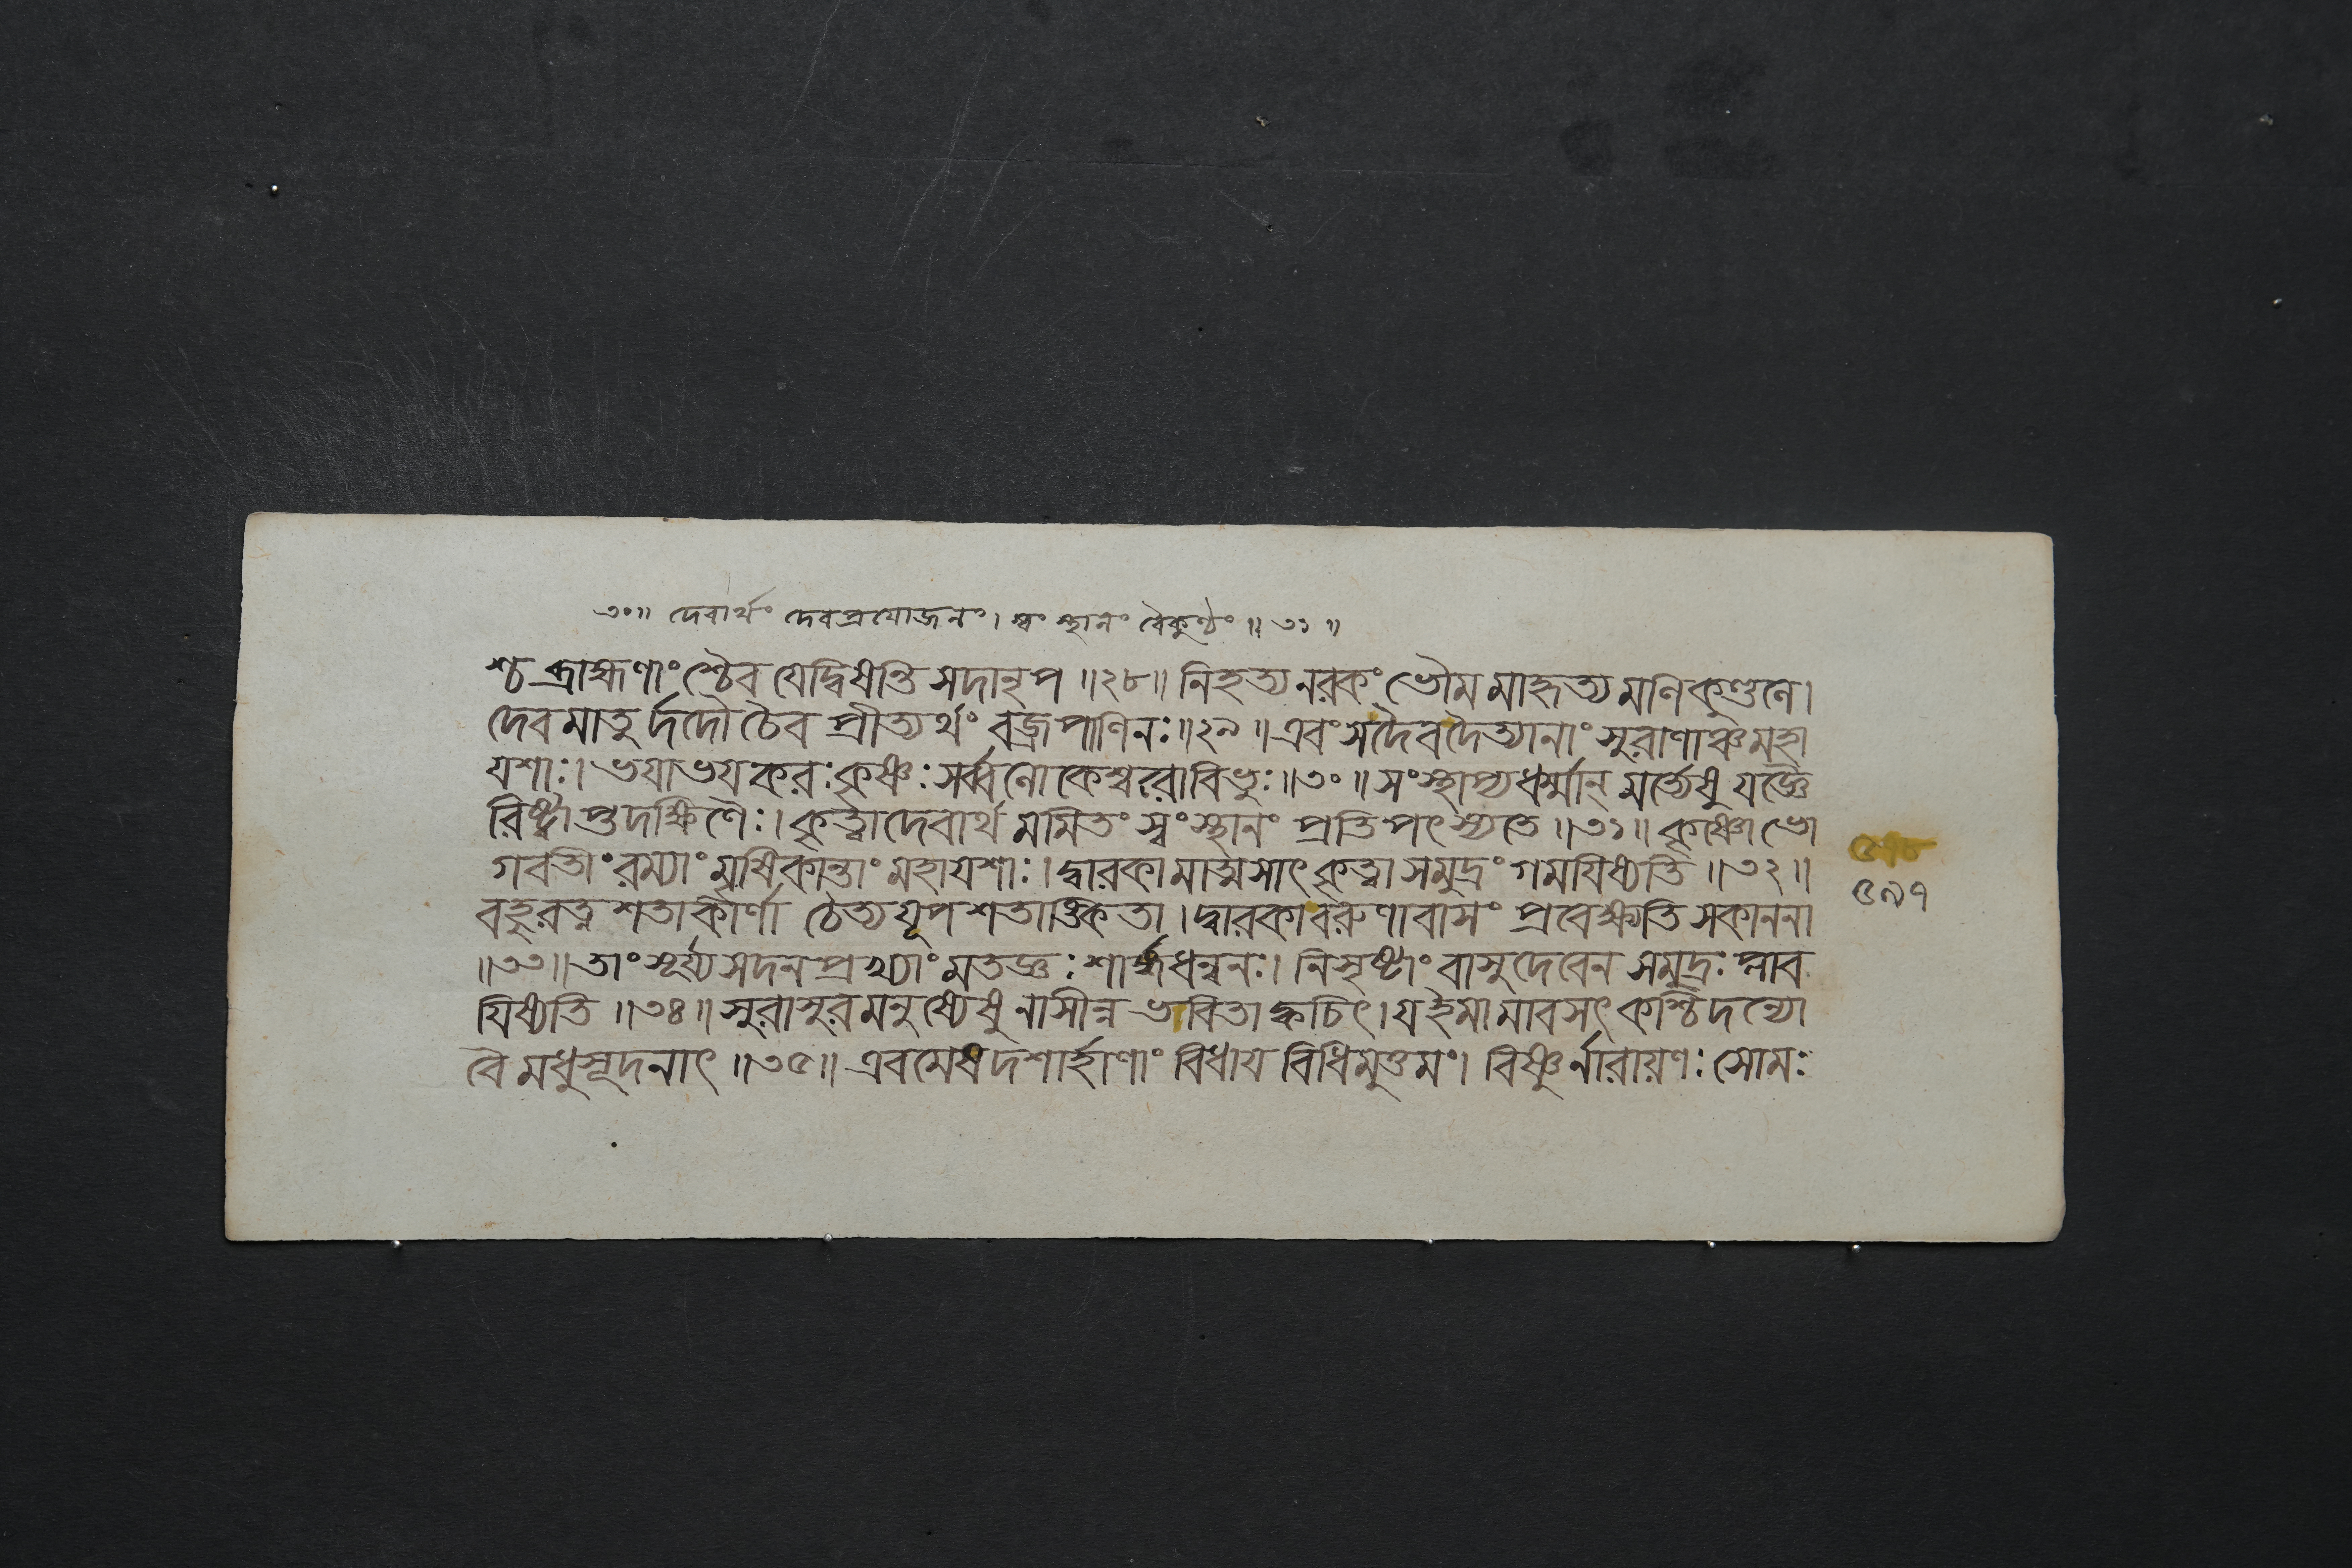 ৩০॥ দেবার্থং দেবপ্রযোজনং। স্বং স্থানং বৈকুণ্ঠং ॥ ৩১ ॥
শ্চ ব্রাহ্মণাংশ্চৈব যেদ্বিষন্তি সদানৃপ ॥২৮॥ নিহত্য নরকং ভৌম মাহৃত্য মণিকুণ্ডলে।
দেবমাতু র্দদৌ চৈব প্রীত্যর্থং বজ্রপাণিনঃ॥২৯॥ এবং সদৈবদৈত্যানাং সুরাণাঞ্চ মহা
যশাঃ। ভযাভযকরঃ কৃষ্ণঃ সর্ব্বলোকেশ্বরোবিভুঃ॥৩০॥ সংস্থাপ্যধর্ম্মান্ মর্ত্যেষু যজ্ঞৈ
রিষ্ট্বাপ্তদক্ষিণৈঃ। কৃত্বাদেবার্থ মমিতং স্বং স্থানং প্রতিপৎস্যতে ॥৩১॥ কৃষ্ণো ভো
গবতীং রম্যাং মৃষিকান্তাং মহাযশাঃ। দ্বারকামাত্মসাৎকৃত্বা সমুদ্রং গমযিষ্যতি ॥৩২॥
৫৯৭
বহুরত্ন শতাকীর্ণা চৈত্যযূপ শতাঙ্কিতা। দ্বারকাবরুণাবাসং প্রবেক্ষ্যতি সকাননা
॥৩৩॥ তাং সূর্য্যসদনপ্রখ্যাং মতজ্ঞঃ শার্ঙ্গধন্বনঃ। নিসৃষ্টাং বাসুদেবেন সমুদ্রঃ প্লাব
যিষ্যতি ॥৩৪॥ সুরাসুর মনুষ্যেষু নাসীন্ন ভবিতা ক্বচিৎ। যইমামাবসৎ কশ্চিদন্যো
বৈ মধুসূদনাৎ ॥৩৫॥ এবমেষ দশার্হাণাং বিধায বিধিমুত্তমং। বিষ্ণুর্নারায়ণঃ সোমঃ